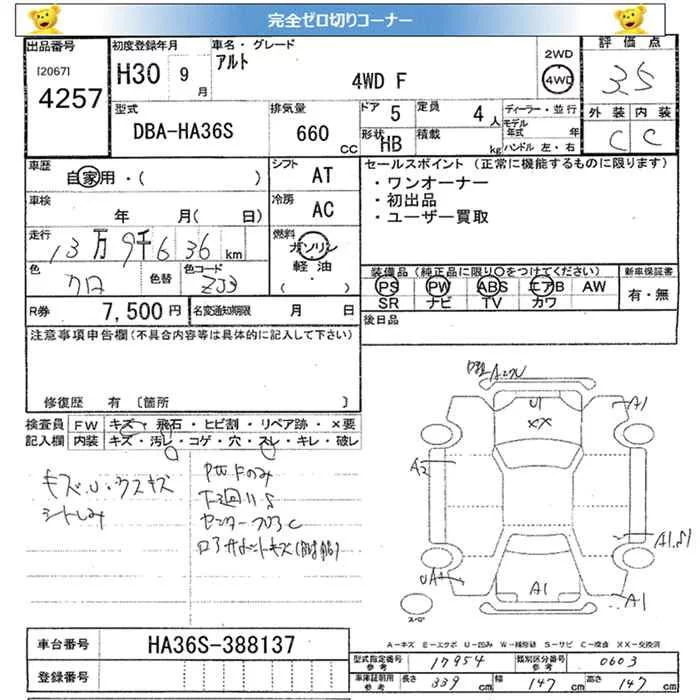 完全ゼロ切りコーナー
出品番号
[2067]
4257
初度登録年月
H30 9月
車名・グレード
アルト
4WD F
2WD
4WD
評価点
3.5
型式
DBA-HA36S
排気量
660 CC
ドア 5
定員 4人
形状 HB
積載 kg
ディーラー・並行
モデル年式 年式
ハンドル 左・右
外装 内装
C C
車歴
自家用・( )
シフト AT
車検
年 月( 日)
冷房 AC
走行
13万9千636km
燃料
ガソリン
軽油
・( )
色
クロ
色替
色コード
ZJ3
セールスポイント(正常に機能するものに限ります)
・ワンオーナー
・初出品
・ユーザー買取
装備品(純正品に限り○をつけてください) 新車保証書
PS PW ABS エアB AW 有・無
SR ナビ TV カワ
R券 7,500円
名変通知期限 月 日
後日品
注意事項申告欄(不具合内容等は具体的に記入して下さい)
修復歴 有 [箇所 ]
検査員 FW キズ・飛石・ヒビ割・リペア跡・×要
記入欄 内装 キズ・汚レ・コゲ・穴・スレ・キレ・破レ
キズ・U・ウスキズ
シートしみ
PWFのみ
下廻り
A1
U1
XX
A2
A1.S1
UA1
A1
A1
スペア
A-キズ E-エクボ U-凹み W-補修跡 S-サビ C-腐食 XX-交換済
車台番号 HA36S-388137
登録番号
型式指定番号 参考 17954
類別区分番号 参考 0603
車庫証明用 参考 長さ 339cm 幅 147cm 高さ 147cm